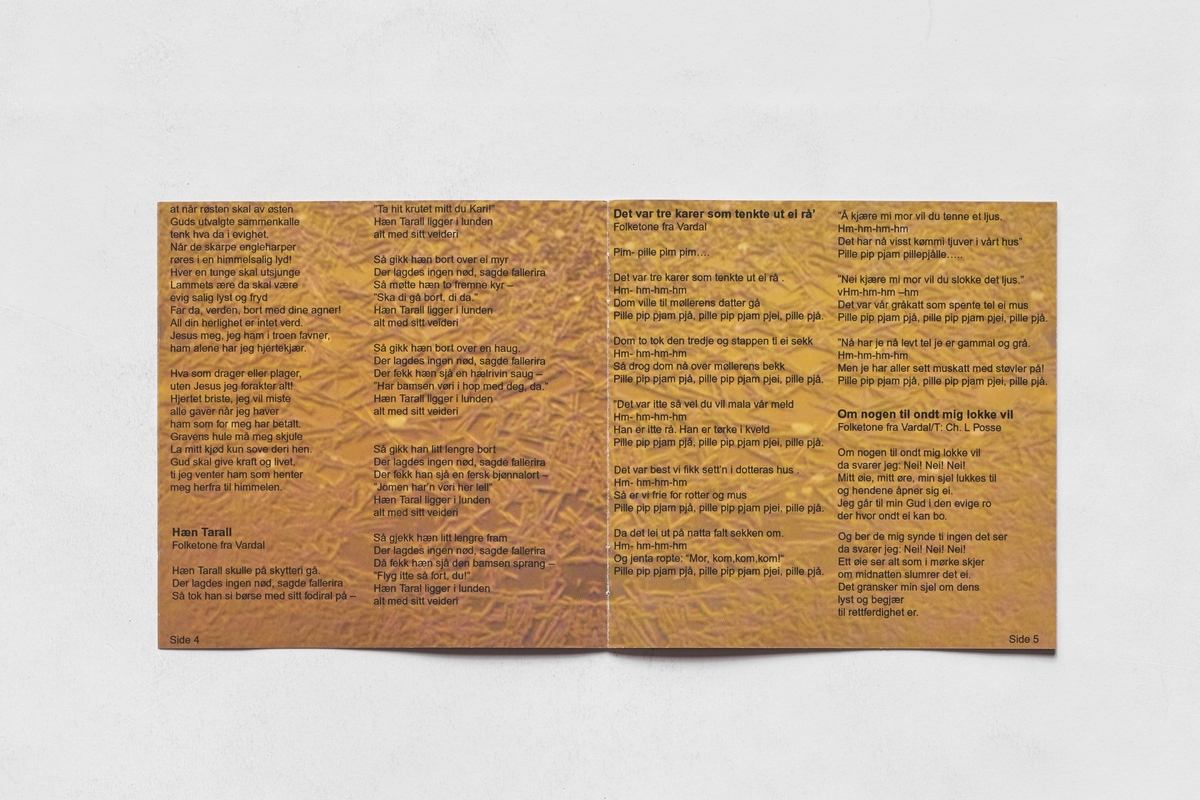 at når røsten skal av østen
Guds utvalgte sammenkalle
tenk hva da i evighet.
Når de skarpe engleharper
røres i en himmelsalig lyd!
Hver en tunge skal utsjunge
Lammets ære da skal være
evig salig lyst og fryd
Far da, verden, bort med dine agner!
All din herlighet er intet verd.
Jesus meg, jeg ham i troen favner,
ham alene har jeg hjertekjær.

Hva som drager eller plager,
uten Jesus jeg forakter alt!
Hjertet briste, jeg vil miste
alle gaver når jeg haver
ham som for meg har betalt.
Gravens hule må meg skjule
La mitt kjød kun sove deri hen.
Gud skal give kraft og livet,
ti jeg venter ham som henter
meg herfra til himmelen.

Hæn Tarall
Folketone fra Vardal

Hæn Tarall skulle på skytteri gå.
Der lagdes ingen nød, sagde fallerira
Så tok han si børse med sitt fodiral på –

Side 4

"Ta hit krutet mitt du Kari!"
Hæn Tarall ligger i lunden
alt med sitt veideri

Så gikk hæn bort over ei myr
Der lagdes ingen nød, sagde fallerira
Så møtte hæn to fremne kyr –
"Ska di gå bort, di da."
Hæn Tarall ligger i lunden
alt med sitt veideri

Så gikk hæn bort over en haug.
Der lagdes ingen nød, sagde fallerira
Der fekk hæn sjå en hælrivin saug –
"Har bamsen vøri i hop med deg, da."
Hæn Tarall ligger i lunden
alt med sitt veideri

Så gikk han litt lengre bort
Der lagdes ingen nød, sagde fallerira
Der fekk han sjå en fersk bjønnalort –
"Jomen har'n vøri her lell"
Hæn Taral ligger i lunden
alt med sitt veideri

Så gjekk hæn litt lengre fram
Der lagdes ingen nød, sagde fallerira
Då fekk hæn sjå den bamsen sprang –
"Flyg itte så fort, du!"
Hæn Taral ligger i lunden
alt med sitt veideri

Det var tre karer som tenkte ut ei rå'
Folketone fra Vardal

Pim- pille pim pim….

Det var tre karer som tenkte ut ei rå .
Hm- hm-hm-hm
Dom ville til møllerens datter gå
Pille pip pjam pjå, pille pip pjam pjei, pille pjå.

Dom to tok den tredje og stappen ti ei sekk
Hm- hm-hm-hm
Så drog dom nå over møllerens bekk
Pille pip pjam pjå, pille pip pjam pjei, pille pjå.

"Det var itte så vel du vil mala vår meld
Hm- hm-hm-hm
Han er itte rå. Han er tørke i kveld
Pille pip pjam pjå, pille pip pjam pjei, pille pjå.

Det var best vi fikk sett'n i dotteras hus .
Hm- hm-hm-hm
Så er vi frie for rotter og mus
Pille pip pjam pjå, pille pip pjam pjei, pille pjå.

Da det lei ut på natta falt sekken om.
Hm- hm-hm-hm
Og jenta ropte: "Mor, kom,kom,kom!"
Pille pip pjam pjå, pille pip pjam pjei, pille pjå.

"Å kjære mi mor vil du tenne et ljus.
Hm-hm-hm-hm
Det har nå visst kømmi tjuver i vårt hus"
Pille pip pjam pillepjålle…..

"Nei kjære mi mor vil du slokke det ljus."
vHm-hm-hm –hm
Det var vår gråkatt som spente tel ei mus
Pille pip pjam pjå, pille pip pjam pjei, pille pjå.

"Nå har je nå levt tel je er gammal og grå.
Hm-hm-hm-hm
Men je har aller sett muskatt med støvler på!
Pille pip pjam pjå, pille pip pjam pjei, pille pjå.

Om nogen til ondt mig lokke vil
Folketone fra Vardal/T: Ch. L Posse

Om nogen til ondt mig lokke vil
da svarer jeg: Nei! Nei! Nei!
Mitt øie, mitt øre, min sjel lukkes til
og hendene åpner sig ei.
Jeg går til min Gud i den evige ro
der hvor ondt ei kan bo.

Og ber de mig synde ti ingen det ser
da svarer jeg: Nei! Nei! Nei!
Ett øie ser alt som i mørke skjer
om midnatten slumrer det ei.
Det gransker min sjel om dens
lyst og begjær
til rettferdighet er.

Side 5